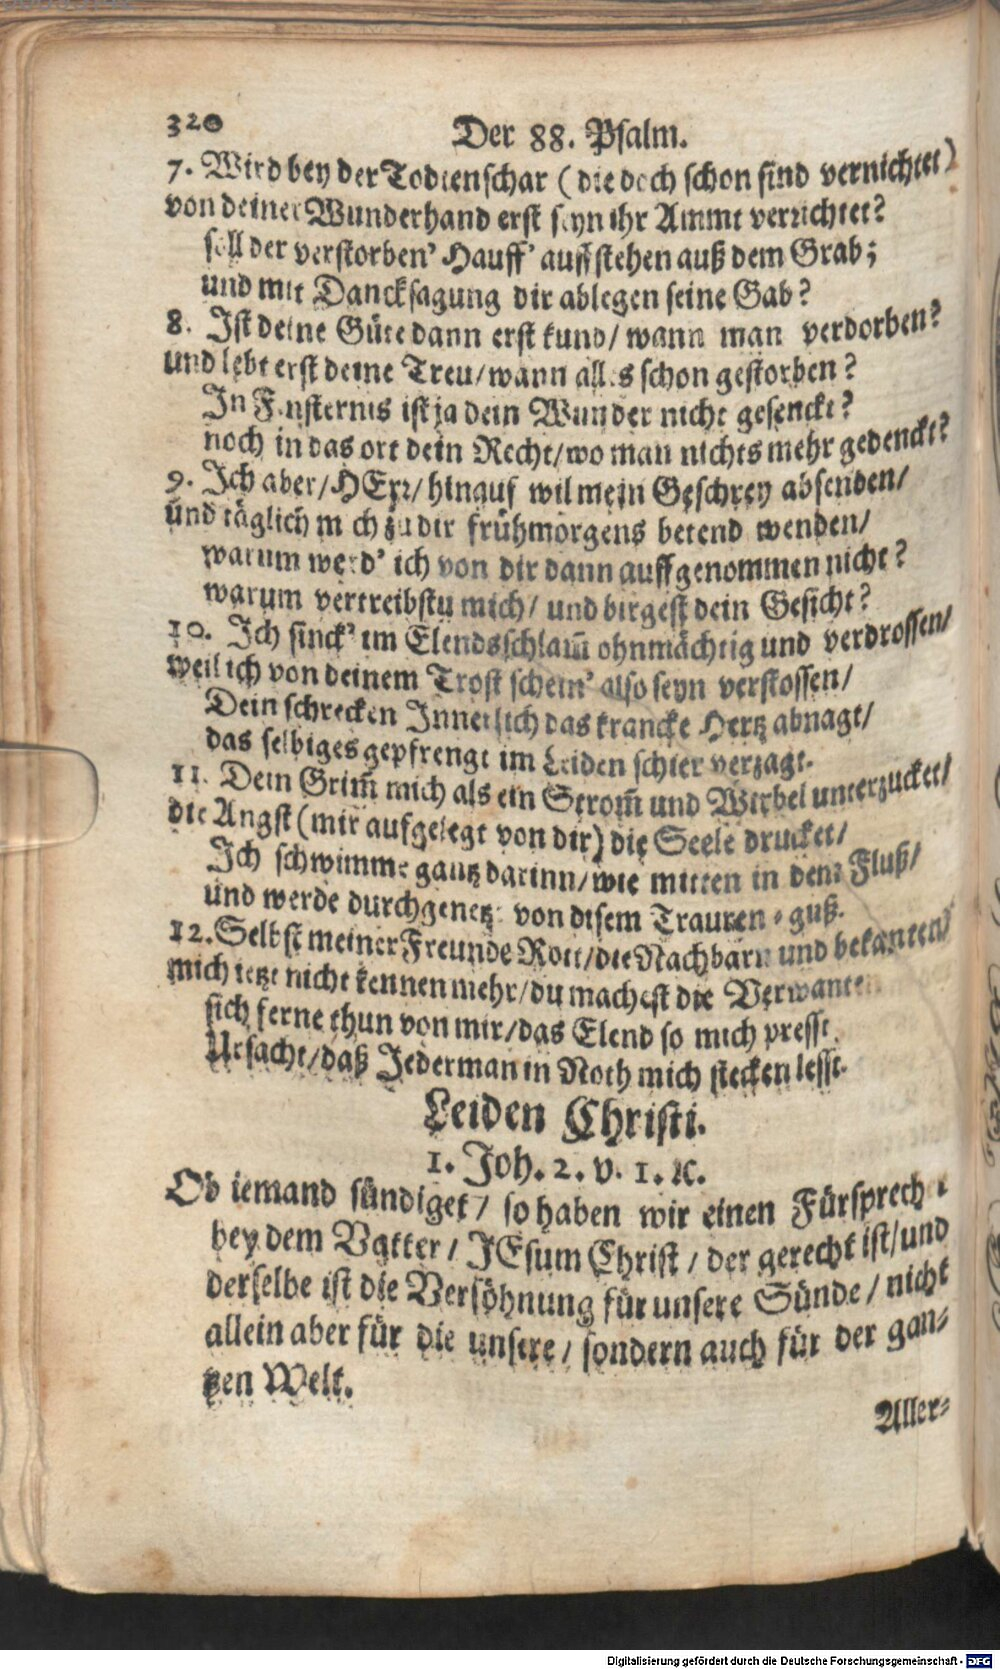 320
Der 88. Psalm.
7. Wird bey der Todtenschar (die doch schon sind vernichtet)
von deiner Wunderhand erst seyn ihr Ammt verrichtet?
soll der verstorben' Hauff' auffstehen auß dem Grab;
und mit Dancksagung dir ablegen seine Gab?
8. Ist deine Güte dann erst kund/ wann man verdorben?
und lebt erst deine Treu/wann alles schon gestorben?
In Finsternis ist ja dein Wunder nicht gesenckt?
noch in das ort dein Recht/wo man nichts mehr gedenckt?
9. Ich aber/HErr/ hinauf wil mein Geschrey absenden/
und täglich mich zu dir frühmorgens betend wenden/
warum werd' ich von dir dann auffgenommen nicht?
warum vertreibstu mich/ und birgest dein Gesicht?
10. Ich sinck' im Elendsschlam̃ ohnmächtig und verdrossen/
weil ich von deinem Trost schein' also seyn verstossen/
Dein schrecken Innerlich das krancke Hertz abnagt/
das selbiges gepfrengt im Leiden schier verzagt.
11. Dein Grim̃ mich als ein Strom̃ und Wirbel unterzucket/
die Angst (mir aufgelegt von dir) die Seele drucket/
Ich schwimme gantz darinn/wie mitten in dem Fluß/
und werde durchgenetzt von disem Trauren-guß.
12. Selbst meiner Freunde Rott/die Nachbarn und bekanten/
mich ietzt nicht kennen mehr/du machest die Verwanten
sich ferne thun von mir/das Elend so mich presst
Ursacht/daß Jederman in Noth mich stecken lesst.
Leiden Christi.
1. Joh. 2. v. 1. ꝛc.
Ob iemand sündiget/ so haben wir einen Fürsprech-
bey dem Vatter/ JEsum Christ/ der gerecht ist/und
derselbe ist die Versöhnung für unsere Sünde/ nicht
allein aber für die unsere/ sondern auch für der gan-
tzen Welt.
Aller-
Digitalisierung gefördert durch die Deutsche Forschungsgemeinschaft - DFG